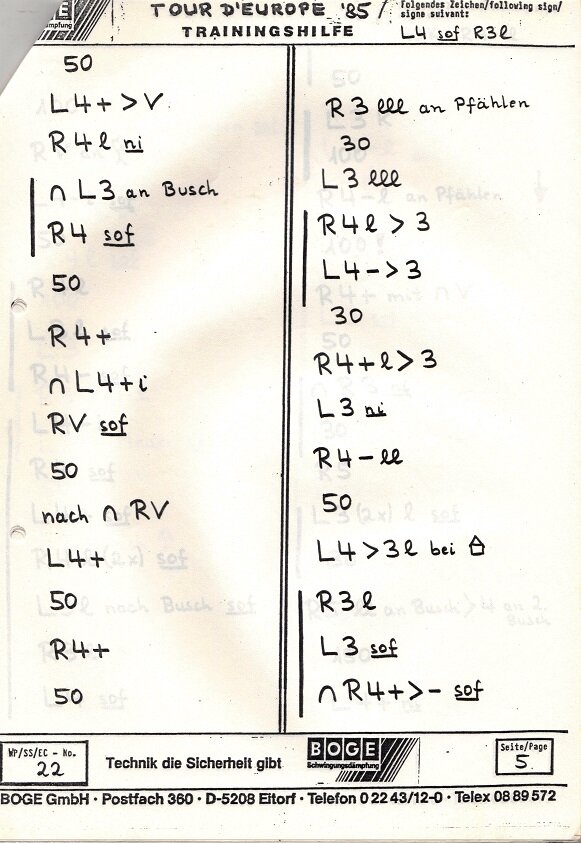 BOGE
TOUR D'EUROPE '85/
TRAININGSHILFE
folgendes Zeichen/following sign/
signe suivant:
L4 sof R3l
50
L4+ > V
R4l ni
∩ L3 an Busch
R4 sof
50
R4+
∩ L4+i
RV sof
50
nach ∩ RV
L4+
50
R4+
50
R3 lll an Pfählen
30
L3 lll
R4l > 3
L4- > 3
30
R4+l > 3
L3 ni
R4- ll
50
L4 > 3l bei ⌂
R3l
L3 sof
∩ R4+ > - sof
WP/SS/EC - No.
22
Technik die Sicherheit gibt
BOGE
Schwingungsdämpfung
Seite/Page
5
BOGE GmbH · Postfach 360 · D-5208 Eitorf · Telefon 0 22 43/12-0 · Telex 08 89 572